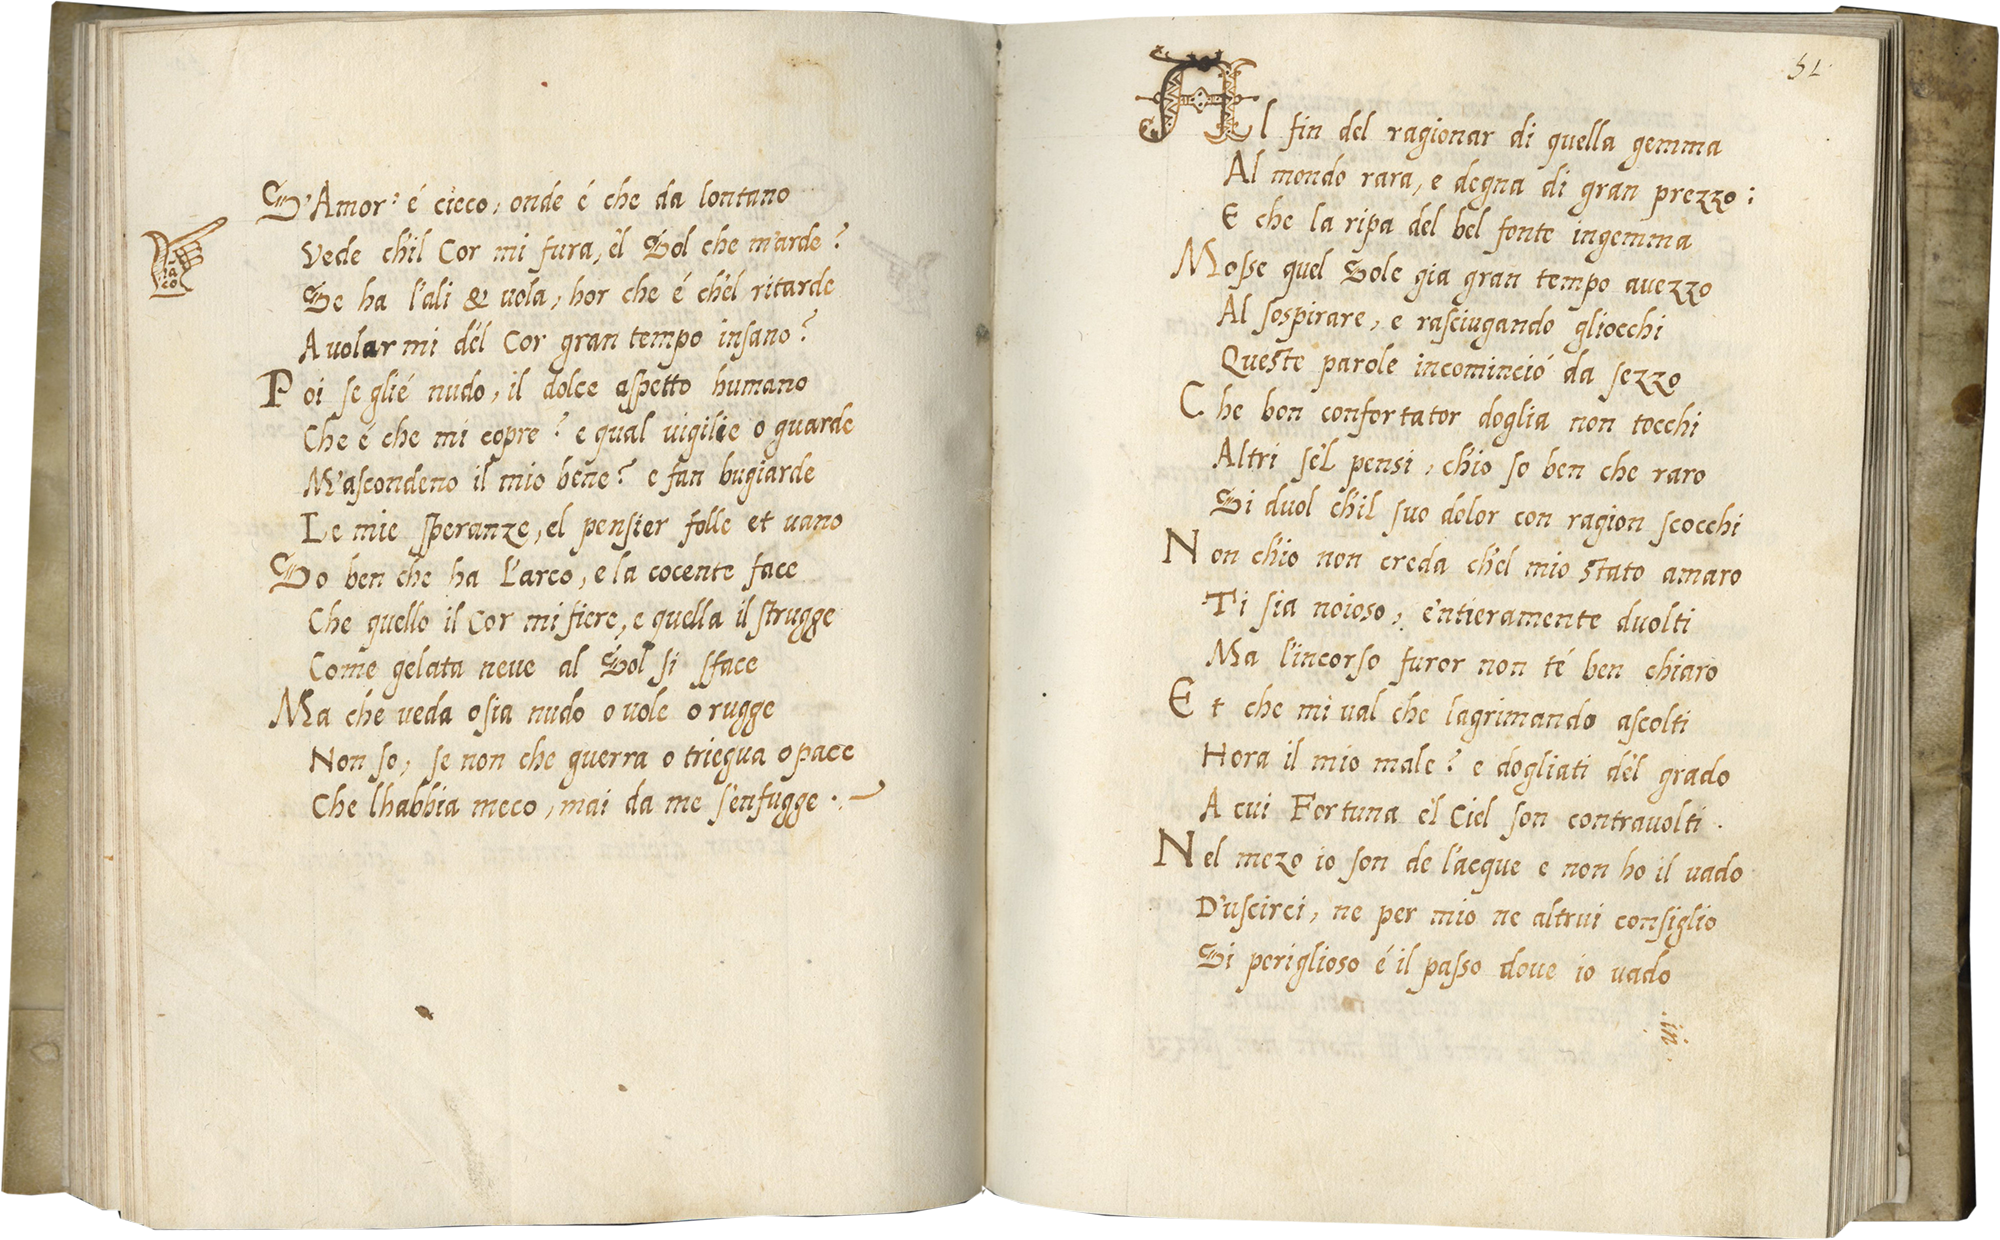 S'Amor' é cieco, onde é che da lontano
Vede ch'il Cor mi fura, e'l Sol che m'arde?
Se ha l'ali & uola, hor che é che'l ritarde
A uolar mi de'l Cor gran tempo insano?
Poi se glie' nudo, il dolce aspetto humano
Che é che mi copre? e qual uigilie o guarde
M'ascondeno il mio bene? e fan bugiarde
Le mie speranze, el pensier folle et uano
So ben che ha l'arco, e la cocente face
Che quello il Cor mi fiere, e quella il strugge
Come gelata neue al Sol si sface
Ma che ueda o sia nudo o uole o rugge
Non so, se non che guerra o triegua o pace
Che lhabbia meco, mai da me s'enfugge.
51
Al fin del ragionar di quella gemma
Al mondo rara, e degna di gran prezzo:
E che la ripa del bel fonte ingemma
Mosse quel Sole gia gran tempo auezzo
Al sospirare, e rasciugando gliocchi
Queste parole incominció da sezzo
Che bon confortator doglia non tocchi
Altri se'l pensi, ch'io so ben che raro
Si duol ch'il suo dolor con ragion scocchi
Non ch'io non creda che'l mio stato amaro
Ti sia noioso, e'ntieramente duolti
Ma l'incorso furor non te' ben chiaro
Et che mi ual che lagrimando ascolti
Hora il mio male? e dogliati de'l grado
A cui Fortuna e'l Ciel son contrauolti.
Nel mezo io son de l'acque e non ho il uado
D'uscirci, ne per mio ne altrui consiglio
Si periglioso é il passo doue io uado